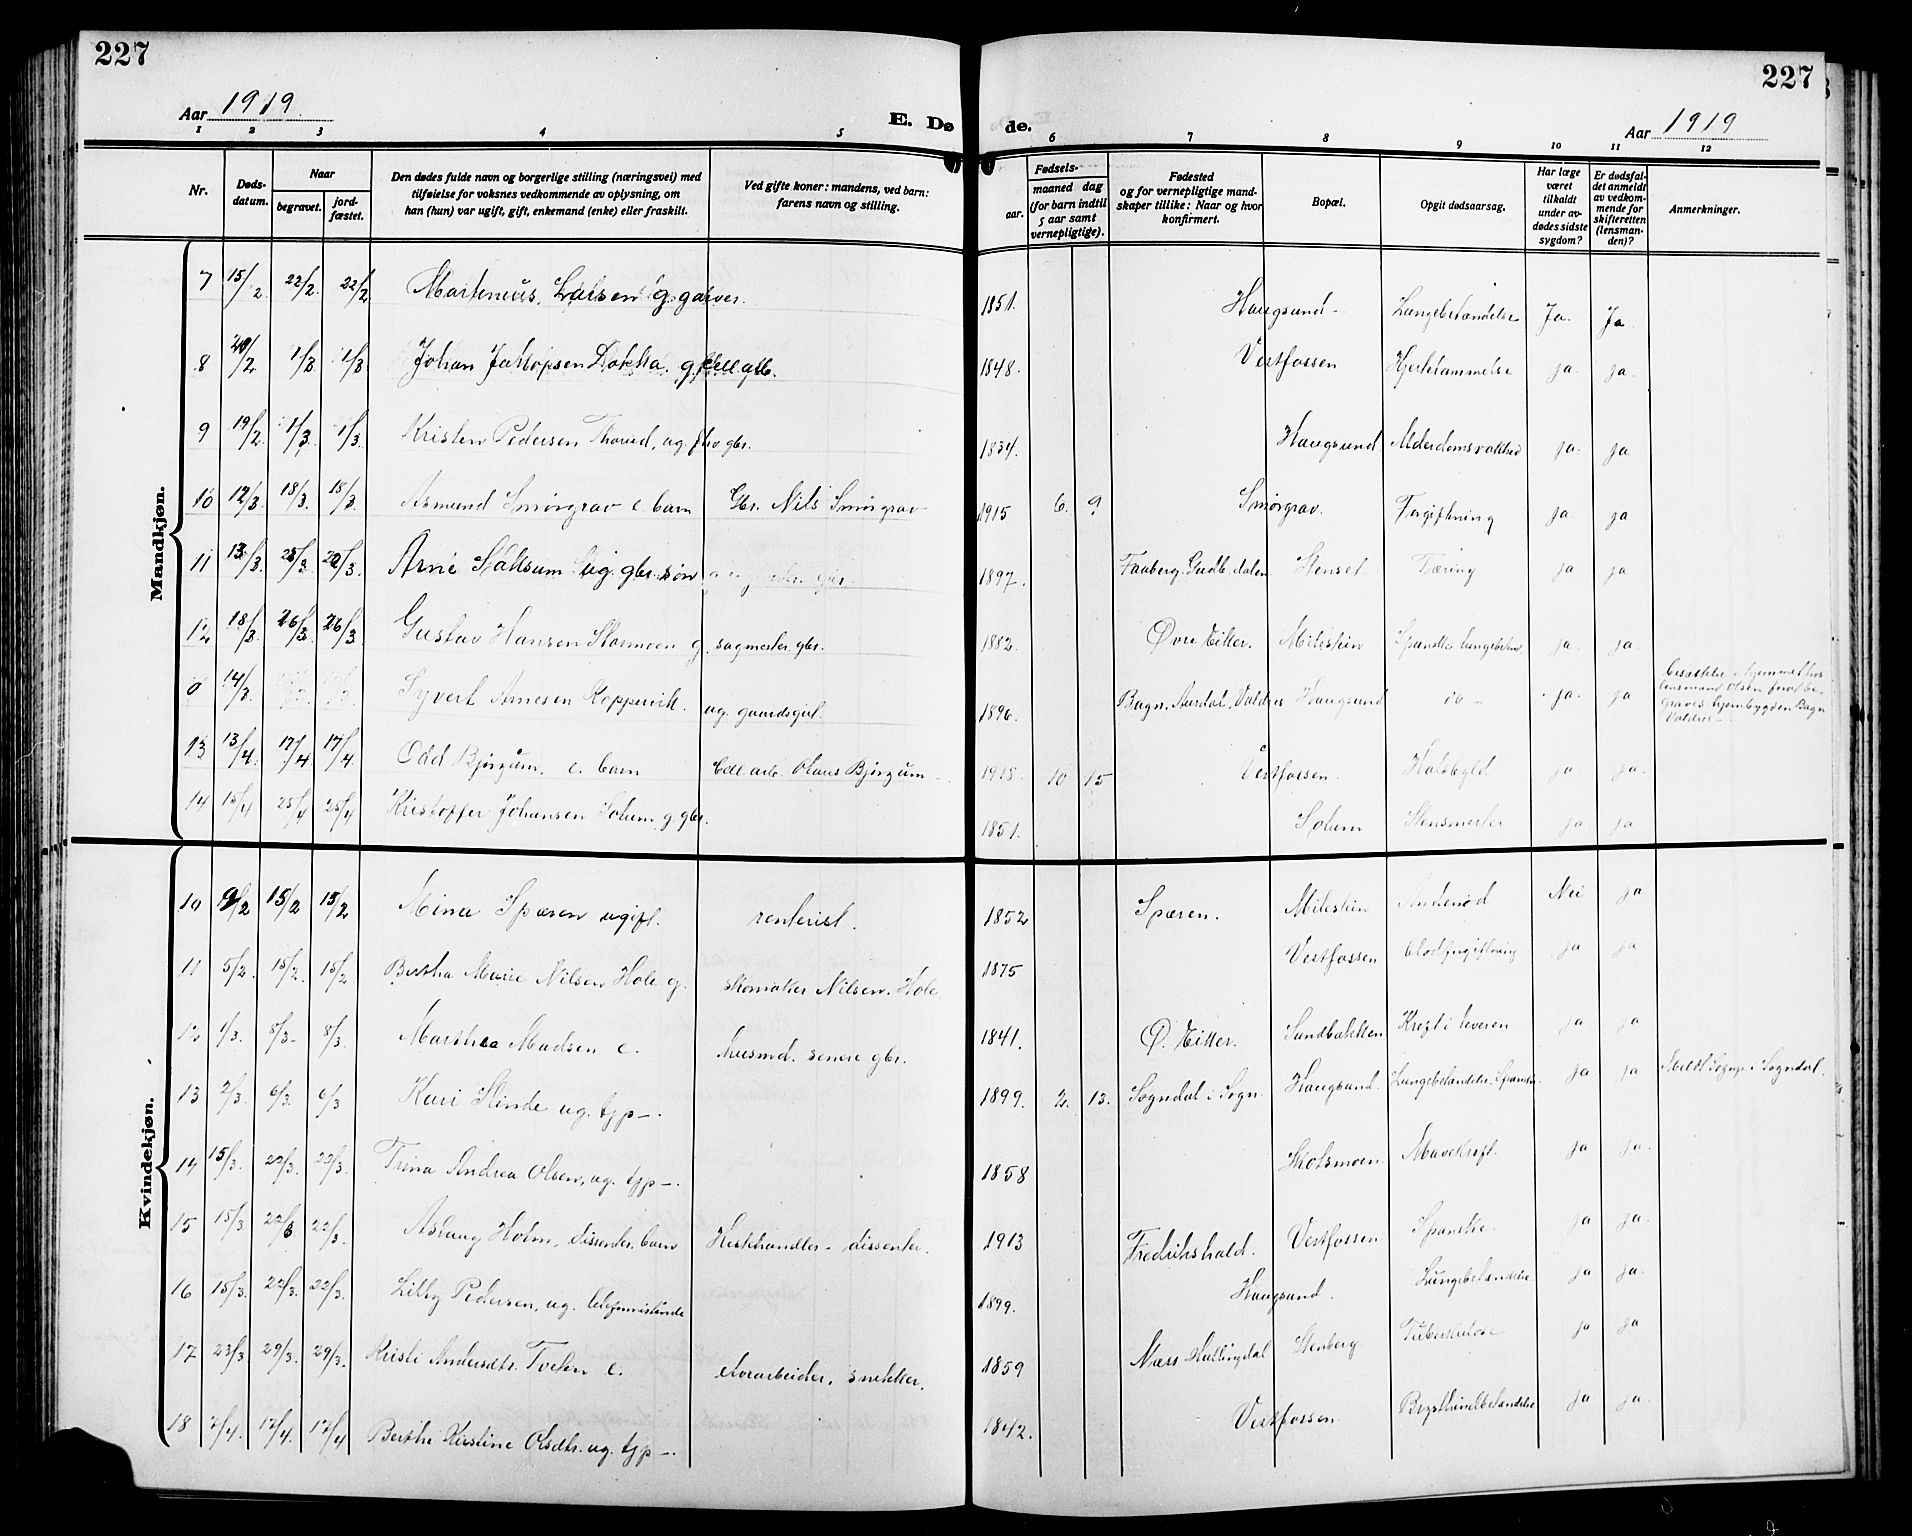 227
227
Aar 1919
E. Dø
de.
Aar 1919
1 2 3 4 5 6 7 8 9 10 11 12
Nr.
Døds-
datum.
Naar
begravet.
jord-
fæstet.
Den dødes fulde navn og borgerlige stilling (næringsvei) med
tilføielse for voksnes vedkommende av oplysning, om
han (hun) var ugift, gift, enkemand (enke) eller fraskilt.
Ved gifte koner: mandens, ved barn:
farens navn og stilling.
Fødsels-
aar.
maaned dag
(for barn indtil
5 aar samt
vernepligtige).
Fødested
og for vernepligtige mand-
skaper tillike: Naar og hvor
konfirmert.
Bopæl.
Opgit dødsaarsag.
Har læge
været
tilkaldt
under av-
dødes sidste
sygdom?
Er dødsfal-
det anmeldt
av vedkom-
mende for
skifteretten
(lensman-
den)?
Anmerkninger.
Mandkjøn.
7 15/2 22/2. 22/2 Martenius Larsen g. garver. 1851. Haugsund Lungebetændelse Ja. Ja.
8 20/2 1/3 1/3 Johan Jakopsen Dokka. g. cell.arb. 1848. Vestfossen Hjertelammelse ja. ja.
9 19/2 1/3 1/3. Kristen Pedersen Thorud, ug. gbr. 1834. Haugsund Alderdomssvakhed ja. ja
10 12/3. 18/3. 18/3 Asmund Smørgrav e. barn Gbr. Nils Smørgrav 1915 6. 9. Smørgrav. Forgiftning ja ja
11 13/3. 25/3 22/3. Arne ug. gbr. søn 1897. Faaberg. Gudb.dalen Stenset Tæring ja ja
12 18/3 26/3. 26/3 Gustav Hansen Stormoen g. sagmester. gbr. 1882. Øvre Eiker. Milestein Spanske lungebetend. ja. ja.
0 14/3. Syvert Arnesen Koppervik. ug. gaardsgut. 1896. Bagn, Aurdal, Valdres Haugsund do - ja. ja
lensmand Olsen
graves hjembygden Bagn
Valdres
13 13/4. 17/4 17/4. Odd Bjørgum. e. barn Cell. arb. Olaus Bjørgum 1918 10 15 Vestfossen. Halsbyld ja ja.
14 15/4 25/4 25/4 Kristoffer Johansen Solum g. gbr. 1851. Solum ja. ja
Kvindekjøn.
10 9/2 15/2 15/2 Mina Spæren ugift. rentenist. 1852 Spæren. Milestein Andenød Nei ja
11 5/2. 15/2. 15/2 Bertha Marie Nilsen Hole g. skomaker Nilsen. Hole 1875 Vestfossen Blodforgiftning ja ja
12 1/3. 8/3. 8/3. Marthea Madsen e. husmd. senere gbr. 1841. Ø. Eiker. Sundbakken Kreft i leveren ja ja
13 2/3. 6/3. 6/3 Kari Slinde ug. tjp-. 1899. 2. 13. Sogndal i Sogn Haugsund. Lungebetændelse, Spanske ja ja Meldt Sognep. i Sogndal.
14 15/3. 22/3. 22/3. Trina Andrea Olsen, ug. tjp-. 1858 Skotsmoen Mavekreft. ja ja.
15 15/3 22/3 22/3. Aslaug Holm, dissenter. barn Hestehandler - dissenter. 1913 Fredrikshald. Vestfossen Spanske. ja ja.
16 15/3. 22/3. 22/3. Lilly Pedersen, ug. telefonistinde 1899. Haugsund. Lungebetændelse ja ja.
17 23/3 29/3. 29/3. Kristi Andersdtr. Tveten e. elvearbeider, snekker. 1859 Næss Hallingdal Stenberg Tuberkulose ja ja
18 7/4. 12/4. 12/4 Berthe Kirstine Olsdtr. ug. tjp-. 1842. Vestfossen Brysthindebetændelse ja ja.